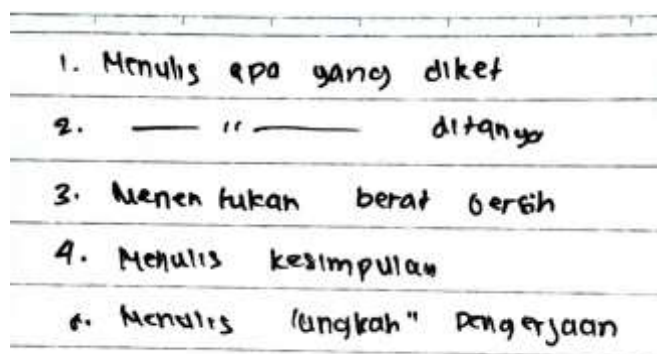 1. Menulis apa yang diket
2. — " — ditanya
3. Menentukan berat bersih
4. Menulis kesimpulan
Menulis langkah" pengerjaan